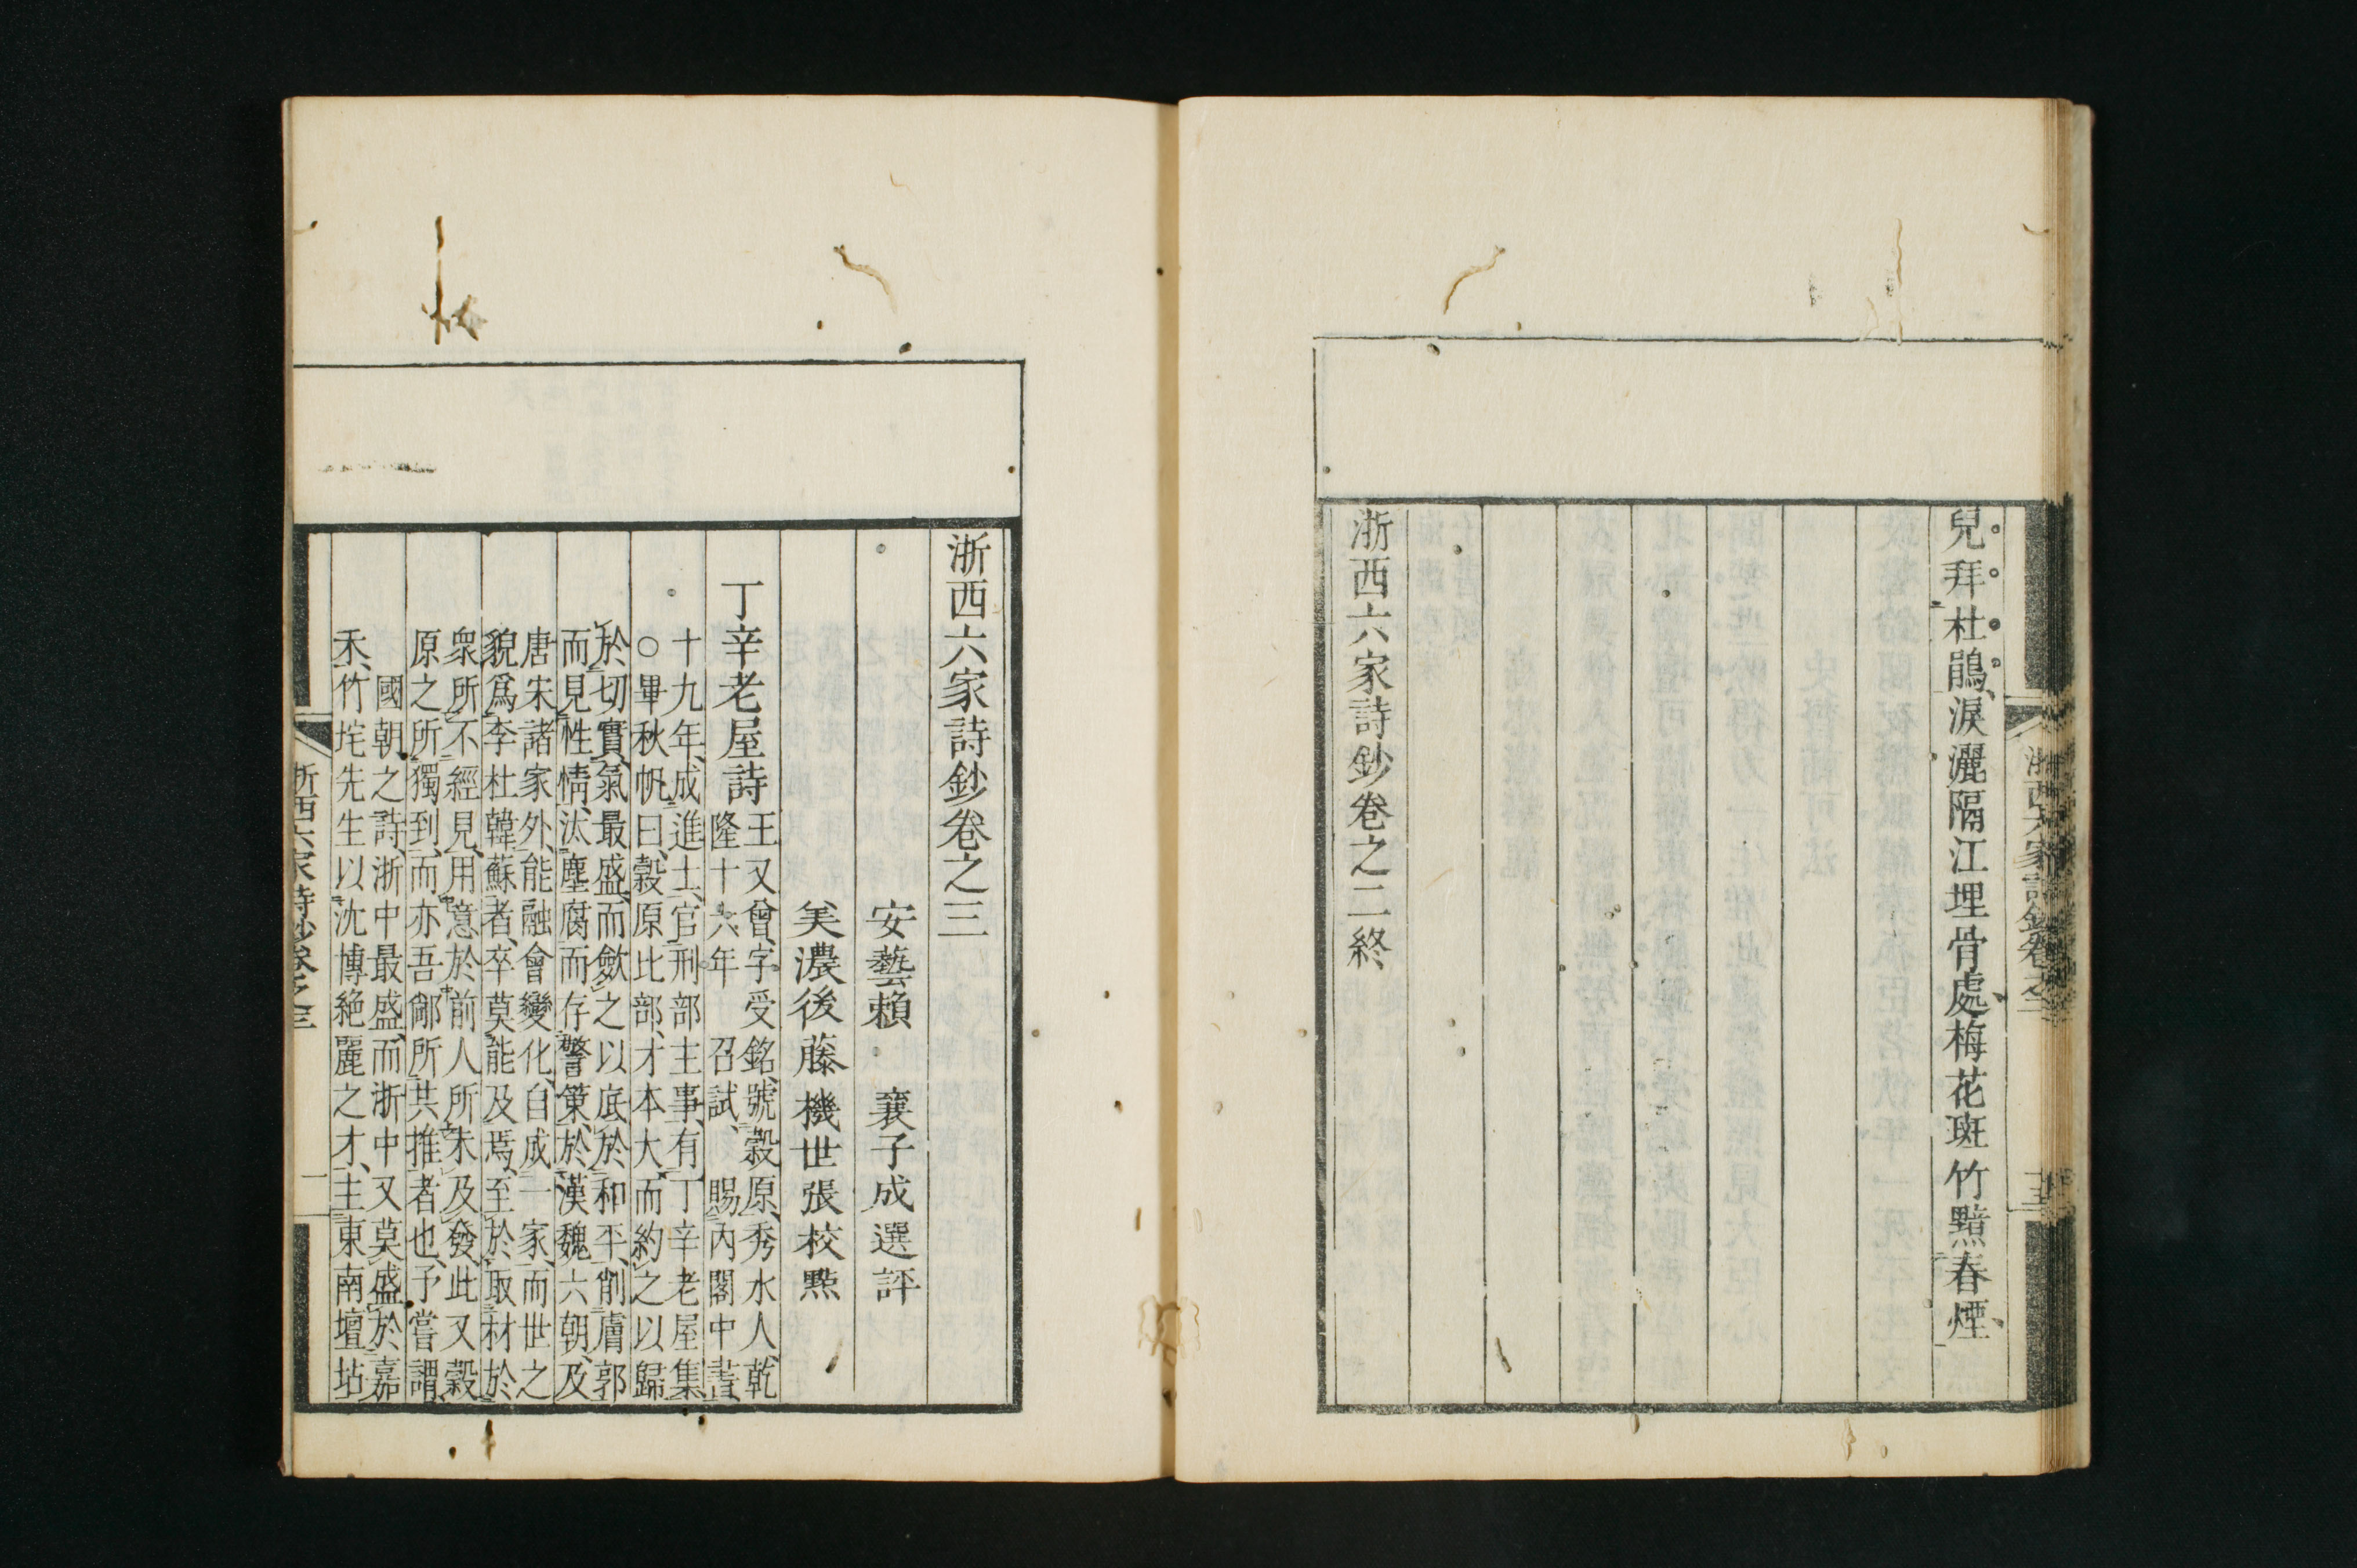 兒拜杜鵑淚灑隔江埋骨處梅花斑竹黯春煙
浙西六家詩鈔卷之二終
浙西六家詩鈔卷之三
安藝賴　襄子成選評
美濃後藤機世張校點
丁辛老屋詩
王又曾、字受銘、號穀原、秀水人、乾
隆十六年　召試、賜內閣中書、
十九年、成進士、官刑部主事、有丁辛老屋集、
○畢秋帆曰、穀原比部、才本大、而約之以歸
於切實、氣最盛、而斂之以底於和平、削膚郭
而見性情、汰塵腐而存警策、於漢魏六朝、及
唐宋諸家外、能融會變化、自成一家、而世之
貌為李杜韓蘇者、卒莫能及焉、至於取材於
衆所不經見、用意於前人所未及發、此又穀
原之所獨到、而亦吾鄙所共推者也、予嘗謂、
國朝之詩、浙中最盛、而浙中又莫盛於嘉
禾、竹垞先生以沈博絕麗之才、主東南壇坫
浙西六家詩鈔卷之三
一